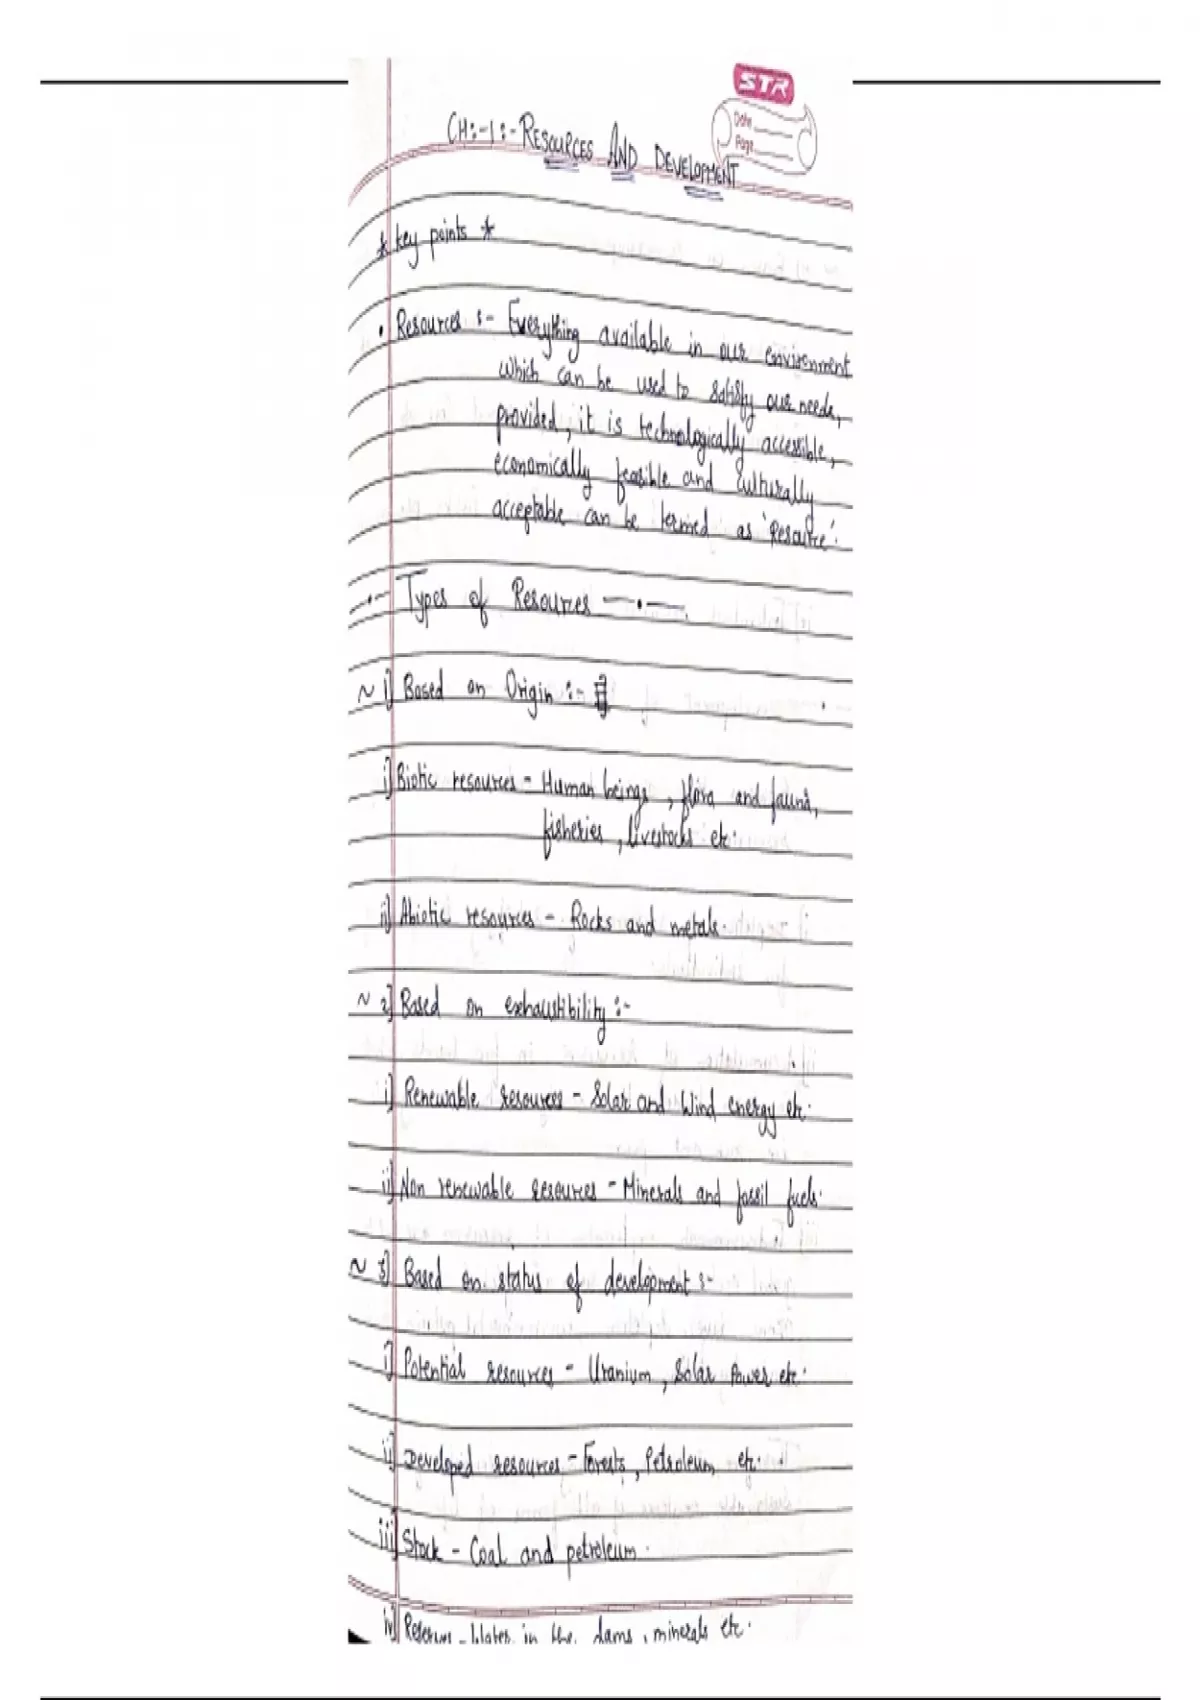 STR
Date
Page
CH:-1:- RESOURCES AND DEVELOPMENT
* key points *
• Resources :- Everything available in our environment
which can be used to satisfy our needs,
provided, it is technologically accessible,
economically feasible and culturally
acceptable can be termed as 'Resource'.
—•— Types of Resources —•—.
~ 1] Based on Origin :-
i] Biotic resources - Human beings, flora and fauna,
fisheries, livestocks etc.
ii] Abiotic resources - Rocks and metals.
~ 2] Based on exhaustibility :-
i] Renewable resources - Solar and Wind energy etc.
ii] Non renewable resources - Minerals and fossil fuels.
~ 3] Based on status of development :-
i] Potential resources - Uranium, Solar Power etc.
ii] Developed resources - Forests, Petroleum, etc.
iii] Stock - Coal and petroleum.
iv] Reserves - Water in the dams, minerals etc.